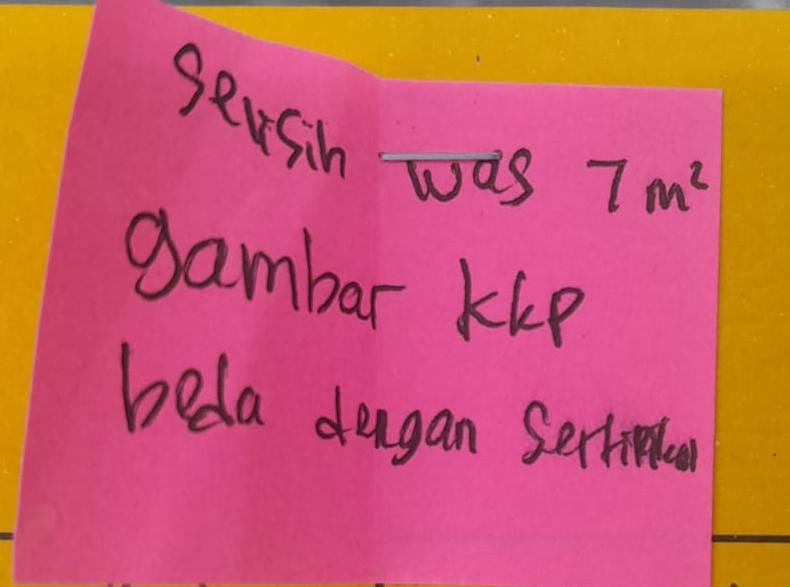 Selisih luas 7 m²
gambar kkp
beda dengan Sertifikat